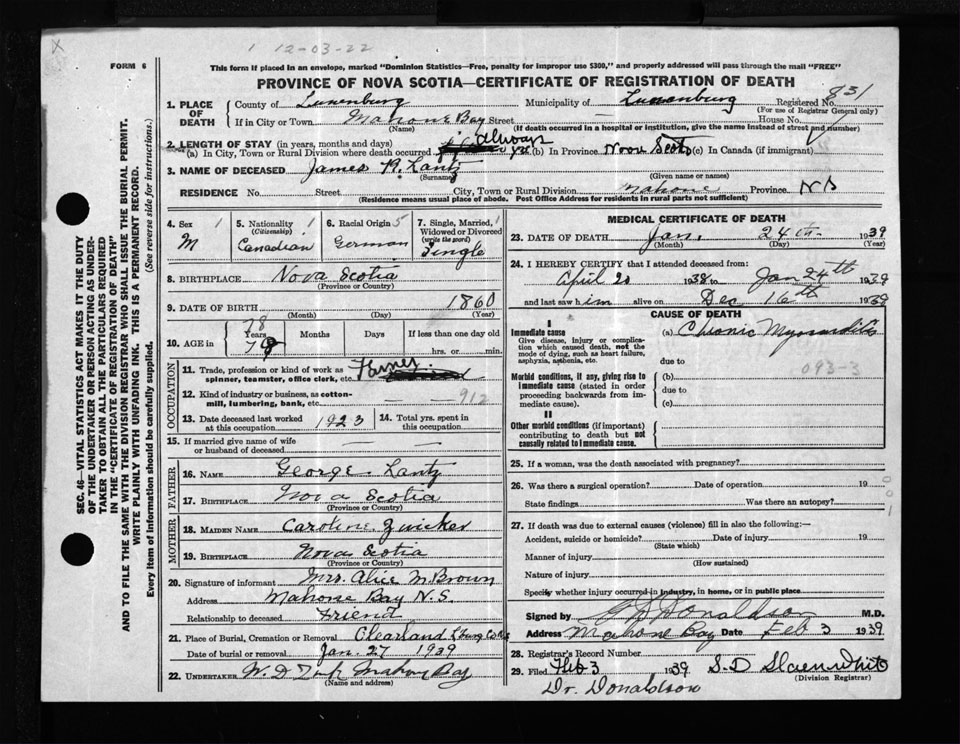 x
1 12-03-22
FORM 6
This form if placed in an envelope, marked "Dominion Statistics—Free, penalty for improper use $300," and properly addressed will pass through the mail "FREE"
PROVINCE OF NOVA SCOTIA—CERTIFICATE OF REGISTRATION OF DEATH
1. PLACE OF DEATH
County of Lunenburg Municipality of Lunenburg Registered No. 831
(For use of Registrar General only)
If in City or Town Mahone Bay Street House No.
(Name) (If death occurred in a hospital or institution, give the name instead of street and number)
2. LENGTH OF STAY (in years, months and days)
(a) In City, Town or Rural Division where death occurred always yrs. (b) In Province Nova Scotia (c) In Canada (if immigrant)
3. NAME OF DECEASED James Lantz
(Surname) (Given name or names)
RESIDENCE No. Street City, Town or Rural Division Mahone Province N S
(Residence means usual place of abode. Post Office Address for residents in rural parts not sufficient)
4. Sex 1 5. Nationality 1 (Citizenship) 6. Racial Origin 5 7. Single, Married, 1 Widowed or Divorced (write the word)
M Canadian German Single
8. BIRTHPLACE Nova Scotia
(Province or Country)
9. DATE OF BIRTH 1860
(Month) (Day) (Year)
78
10. AGE in Years Months Days If less than one day old
hrs. or min.
OCCUPATION
11. Trade, profession or kind of work as spinner, teamster, office clerk, etc. Farmer
12. Kind of industry or business, as cotton-mill, lumbering, bank, etc. — — 912
13. Date deceased last worked at this occupation 1923 14. Total yrs. spent in this occupation
15. If married give name of wife or husband of deceased — —
FATHER
16. NAME George Lantz
17. BIRTHPLACE Nova Scotia
(Province or Country)
MOTHER
18. MAIDEN NAME Caroline Zwicker
19. BIRTHPLACE Nova Scotia
(Province or Country)
20. Signature of informant Mrs. Alice M. Brown
Address Mahone Bay N.S.
Relationship to deceased Friend
21. Place of Burial, Cremation or Removal Clearland
Date of burial or removal Jan. 27 1939
22. UNDERTAKER W. D. Mahone Bay
(Name and address)
MEDICAL CERTIFICATE OF DEATH
23. DATE OF DEATH Jan. 24th 1939
(Month) (Day) (Year)
24. I HEREBY CERTIFY that I attended deceased from:
April 20 1938 to Jan 24th 1939
and last saw him alive on Dec 16th 19
CAUSE OF DEATH
I
Immediate cause (a) Chronic Myocarditis
Give disease, injury or complication which caused death, not the mode of dying, such as heart failure, asphyxia, asthenia, etc.
due to
093-3
Morbid conditions, if any, giving rise to immediate cause (stated in order proceeding backwards from immediate cause). (b)
due to
(c)
II
Other morbid conditions (if important) contributing to death but not causally related to immediate cause.
25. If a woman, was the death associated with pregnancy?
26. Was there a surgical operation? Date of operation 19
State findings Was there an autopsy?
27. If death was due to external causes (violence) fill in also the following:—
Accident, suicide or homicide? Date of injury 19
(State which)
Manner of injury
(How sustained)
Nature of injury
Specify whether injury occurred in industry, in home, or in public place
Signed by Donaldson M.D.
Address Mahone Bay Date Feb 3 1939
28. Registrar's Record Number
29. Filed Feb 3 1939 S. D.
(Division Registrar)
Dr. Donaldson
SEC. 46—VITAL STATISTICS ACT MAKES IT THE DUTY
OF THE UNDERTAKER OR PERSON ACTING AS UNDER-
TAKER TO OBTAIN ALL THE PARTICULARS REQUIRED
IN THE "CERTIFICATE OF REGISTRATION OF DEATH"
AND TO FILE THE SAME WITH THE DIVISION REGISTRAR WHO SHALL ISSUE THE BURIAL PERMIT.
WRITE PLAINLY WITH UNFADING INK. THIS IS A PERMANENT RECORD.
Every item of information should be carefully supplied. (See reverse side for instructions.)